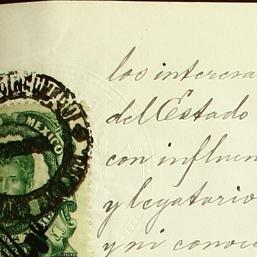 los interesa
del Estado
con influen
y legatario
y ni conoci
MEXICO